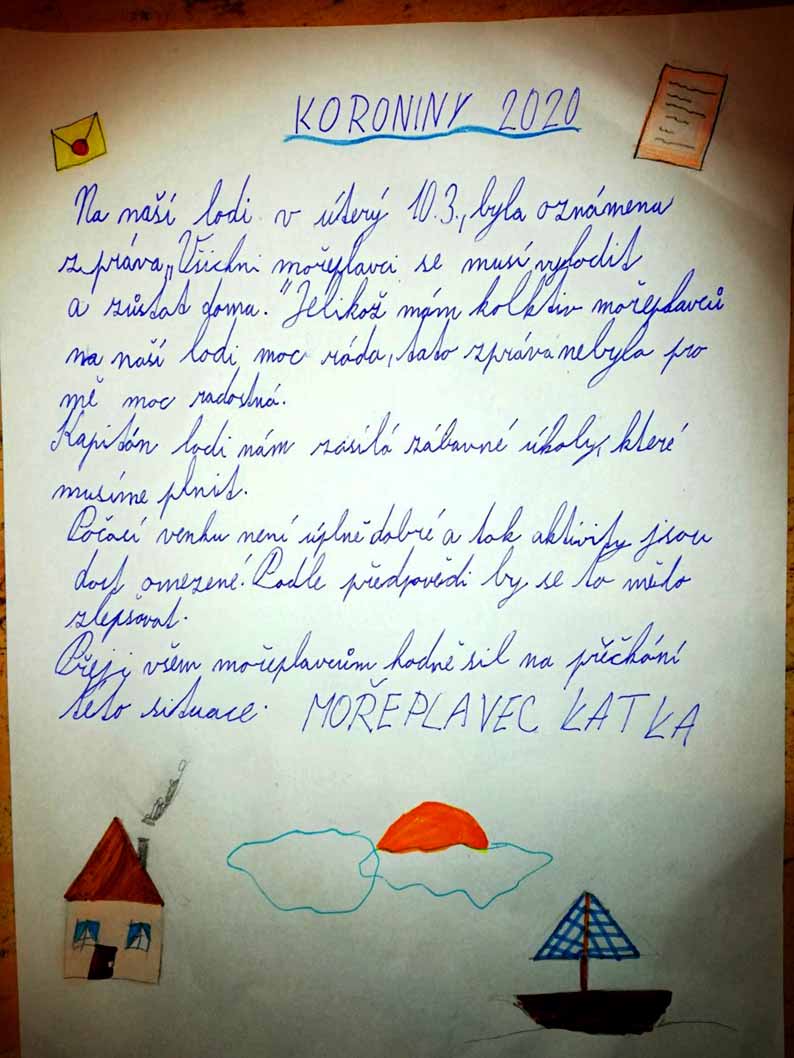 KORONINY 2020
Na naší lodi v úterý 10.3., byla oznámena
zpráva „Všichni mořeplavci se musí vylodit
a zůstat doma." Jelikož mám kolktiv mořeplavců
na naší lodi moc ráda, tato zpráva nebyla pro
mě moc radostná.
Kapitán lodi nám zasílá zábavné úkoly, které
musíme plnit.
Počací venku není úplně dobré a tak aktivity jsou
dost omezené. Podle předpovědi by se to mělo
zlepšovat.
Přeji všem mořeplavcům hodně sil na přěčkání
této situace. MOŘEPLAVEC KATKA